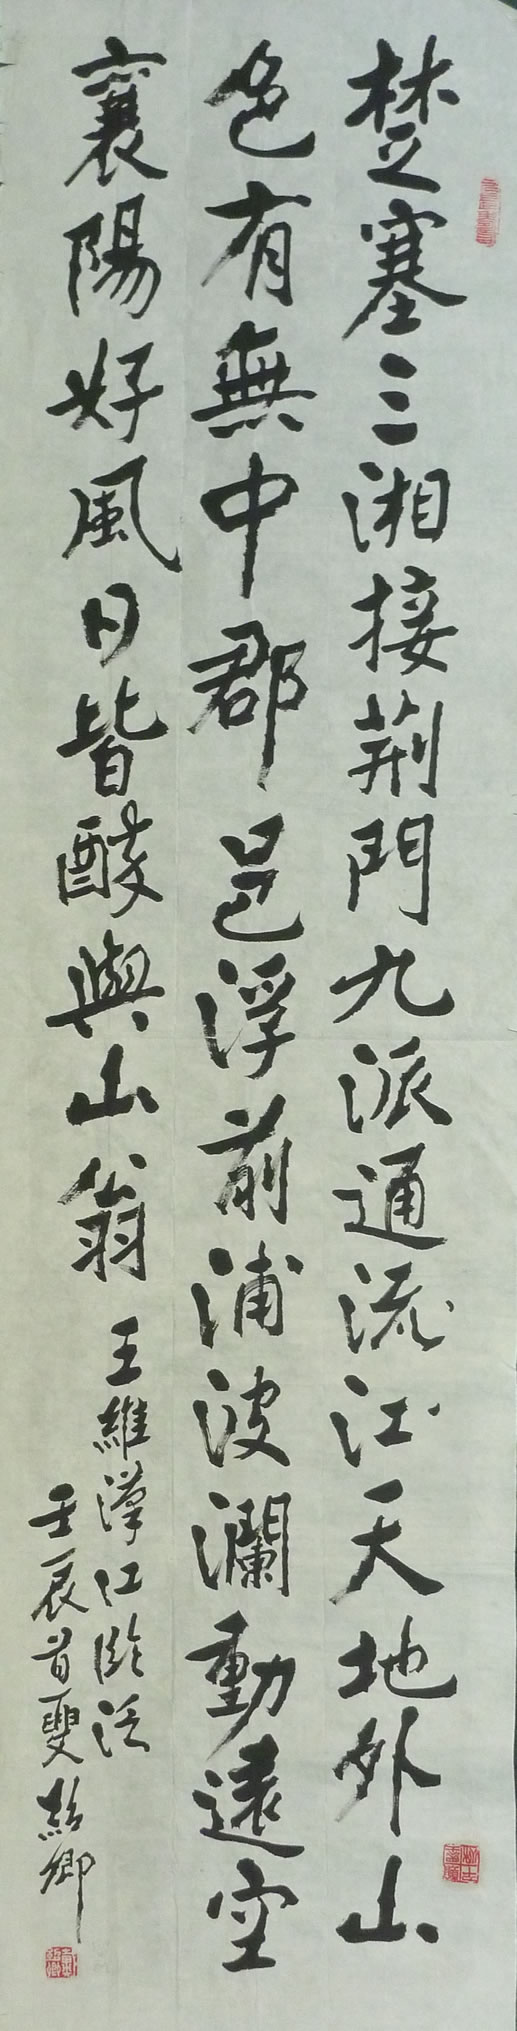 楚塞三湘接荊門九派通流江天地外山
色有無中郡邑浮前浦波瀾動遠空
襄陽好風日皆醉與山翁
王維漢江臨泛
壬辰首夏 卿